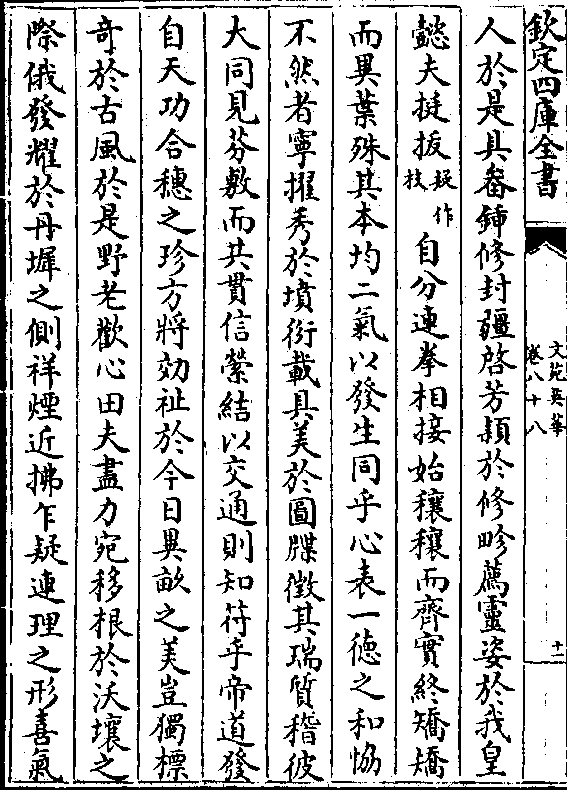 欽定四庫全書
文苑英華
卷八十八
十一
人於是具畚鍤修封疆啓芳穎於修畛薦靈姿於我皇
懿夫挺扳疑作技自分連拳相接始穰穰而齊實終矯矯
而異葉殊其本均二氣以發生同乎心表一徳之和恊
不然者寧擢秀於墳衍載具美於圖牒徴其瑞質稽彼
大同見芬敷而共貫信縈結以交通則知符乎帝道發
自天功合穗之珍方將効祉於今日異畝之美豈獨標
竒於古風於是野老歡心田夫盡力宛移根於沃壤之
際俄發耀於丹墀之側祥煙近拂乍疑連理之形喜氣